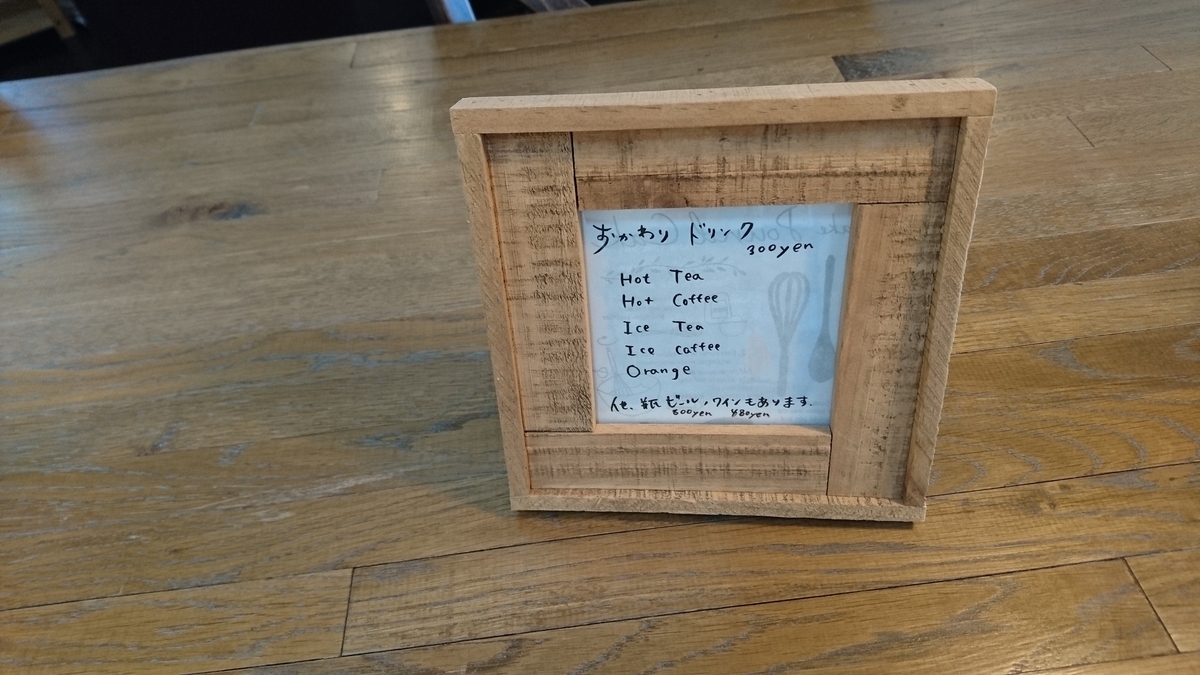 おかわり ドリンク
300yen
Hot Tea
Hot Coffee
Ice Tea
Ice Coffee
Orange
他、瓶ビール、ワインもあります.
480yen